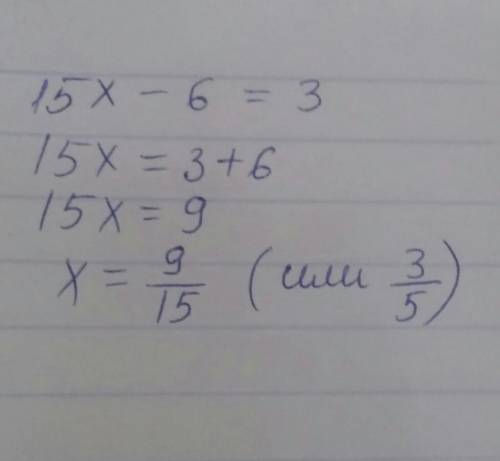 15x - 6 = 3
15x = 3+6
15x = 9
x = 9/15 (или 3/5)